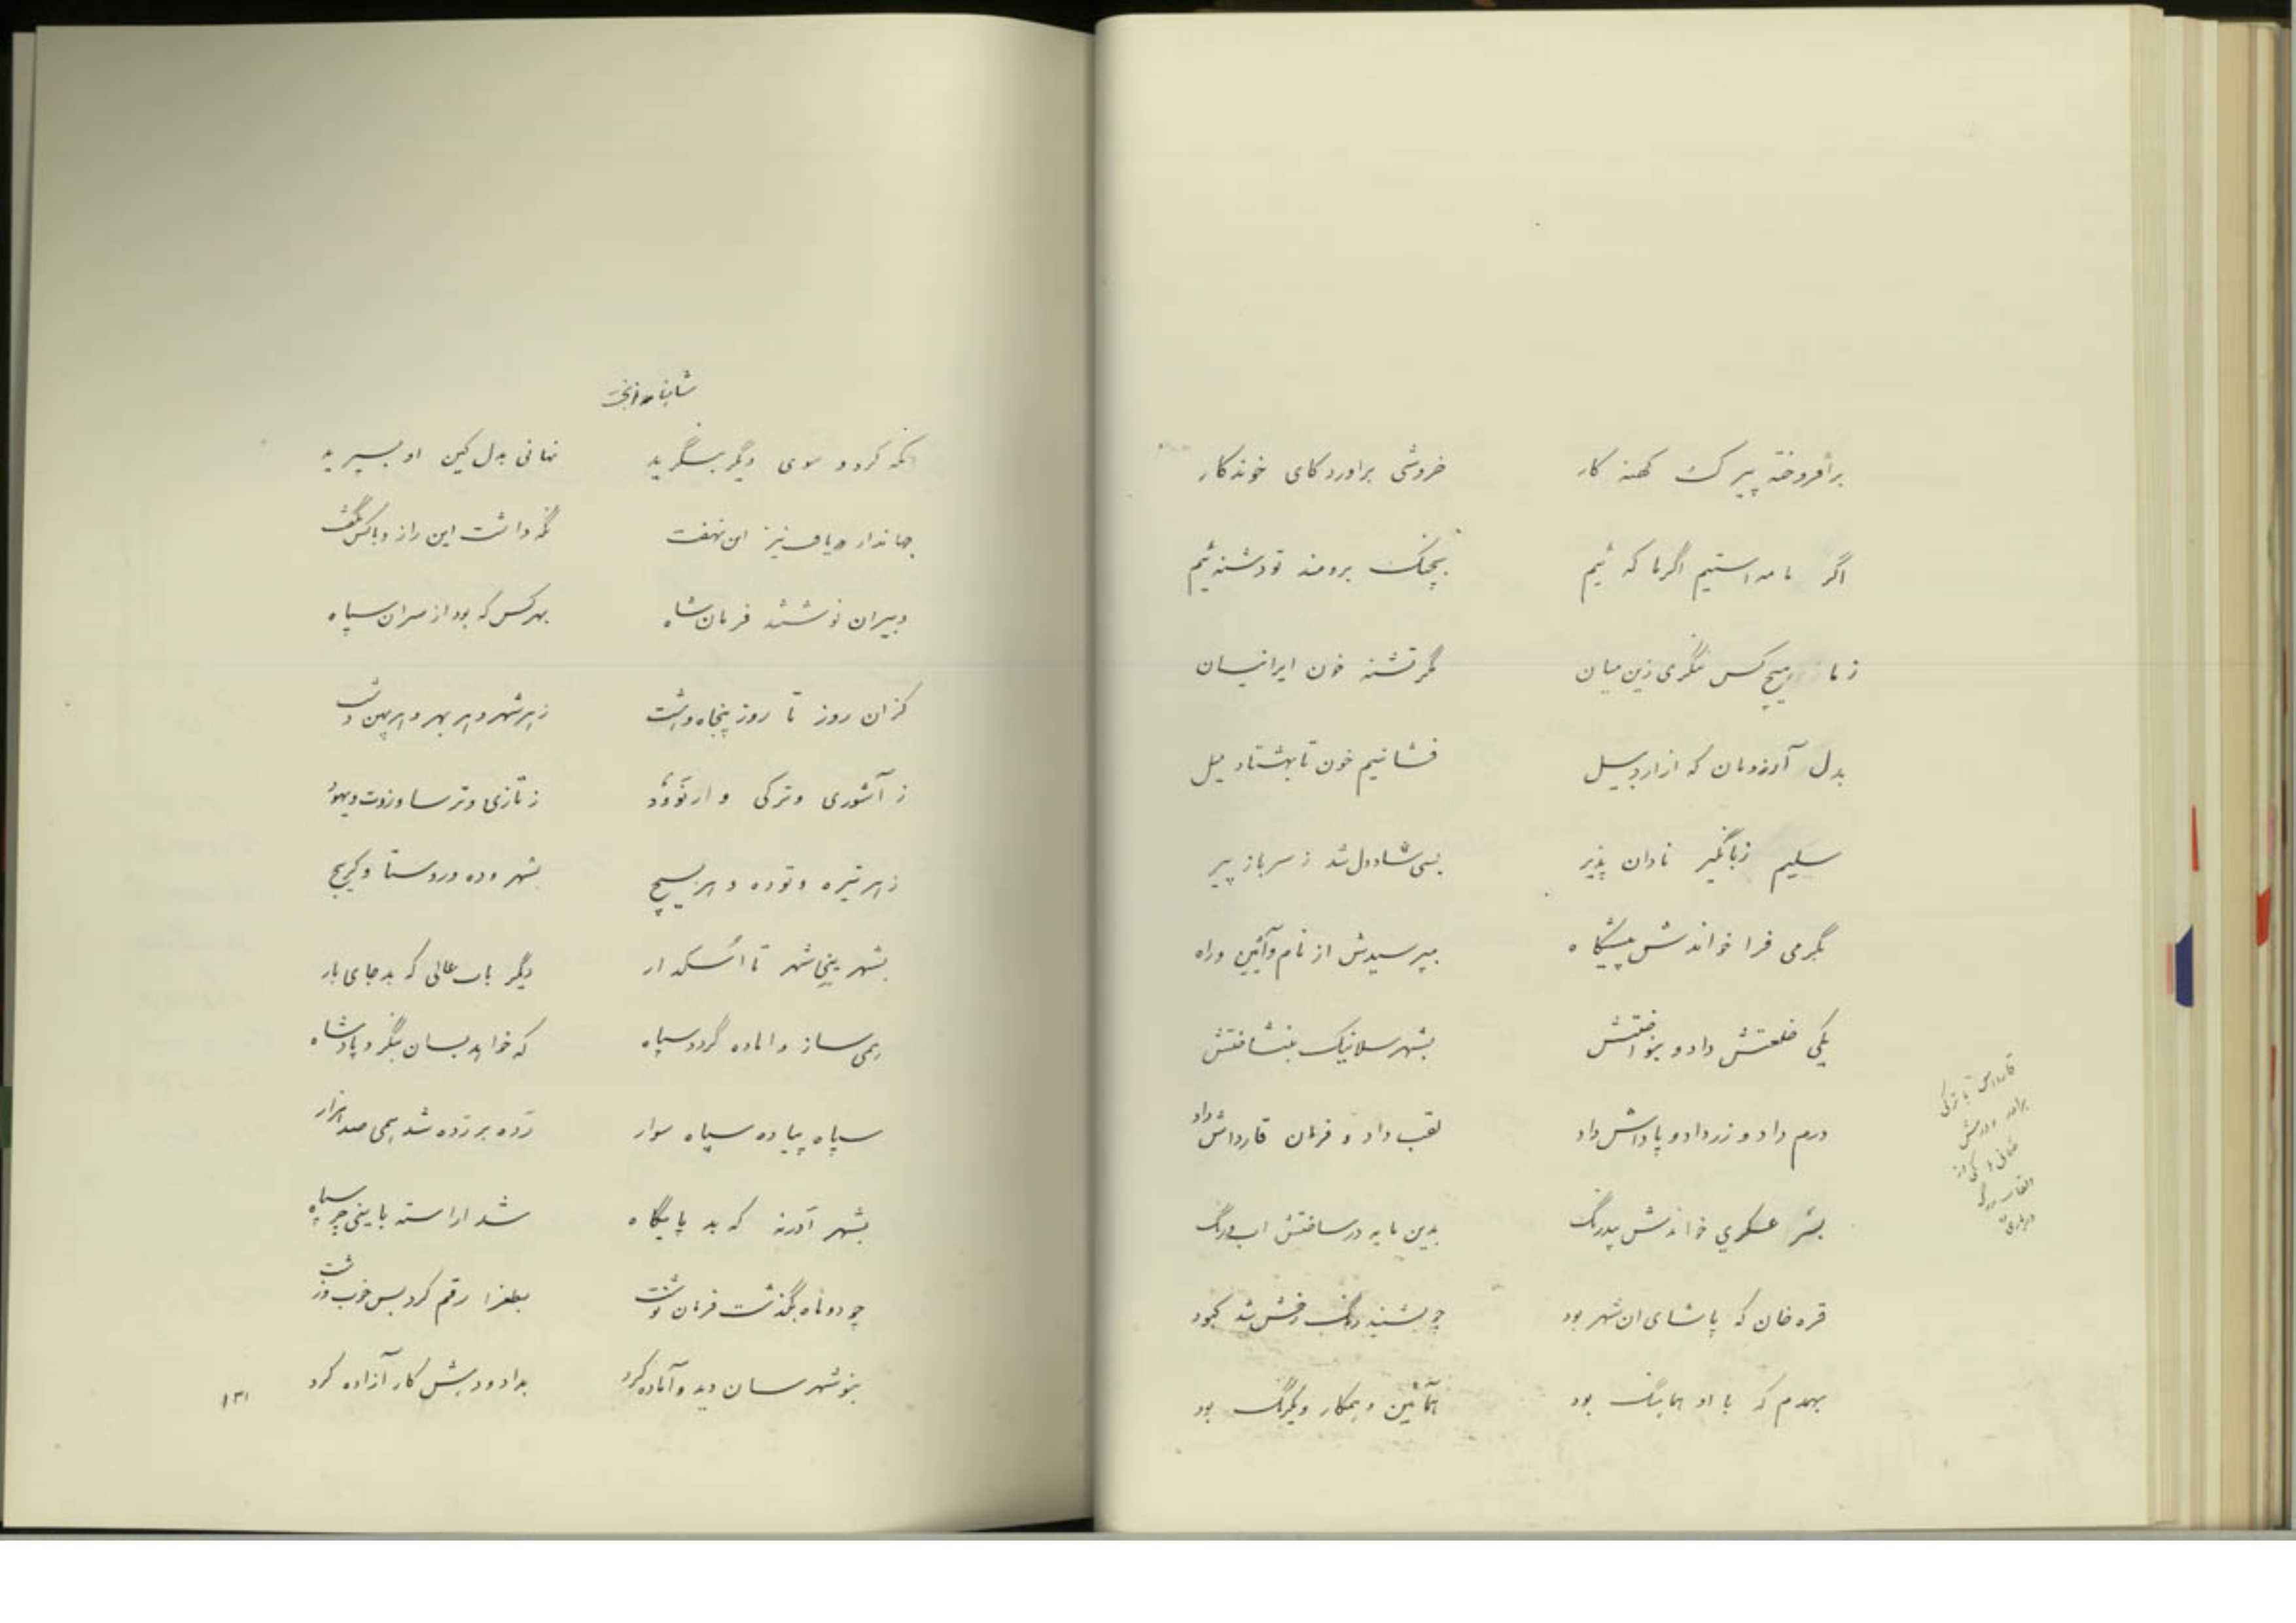 برافروخته پیرک کهنه کار خروشی براورد کای خوندکار
اگر ما مه استیم اگر ما که ئیم بچنگ برومند تو دشنه ئیم
ز ما هیچ کس ننگری زین میان مگر تشنه خون ایرانیان
بدل آرزومان که از اردبیل فشانیم خون تا بهشتاد میل
سلیم زبانگیر نادان پذیر بسی شاد دل شد ز سرباز پیر
بگرمی فرا خواندش پیشگاه بپرسیدش از نام و آئین و راه
یکی خلعتش داد و بنواختش بشهر سلانیک بنشاختش
درم داد و زر داد و پاداش داد لقب داد و فرمان قارداش داد
بسَر عسکری خواندش بیدرنگ بدین مایه در ساختش اب و رنگ
قره خان که پاشای ان شهر بود چو بشنید رنگ رخش شد کبود
بهمدم که با او هماهنگ بود همآئین و همکار و یکرنگ بود
قارداش بترکی
برادر
یکی از
القاب بزرگ
درباری
نگه کرد و سوی دگر بنگرید نهانی بدل کین او بسپرید
جهاندار نیز این نهفت نگه داشت این راز و با کس نگفت
دبیران نوشتند فرمان شاه بهر کس که بود از سران سپاه
کزان روز تا روز پنجاه و هشت ز هر شهر و هر بهر و هر پهن دشت
ز آشوری و ترکی و ارنؤود ز تازی و ترسا و زوت و یهود
ز هر تیره و توده و هر بسیج بشهر و ده و روستا و کریج
بشهر ینی شهر تا اُسکدار دیگر باب عالی که بد جای بار
همی ساز و اماده گردد سپاه که خواهد بسان بنگرد پادشاه
سپاه پیاده سپاه سوار رَده بر رَده شد همی صد هزار
بشهر اَدرنه که بد پایگاه شد اراسته با ینی چر سپاه
چو دو ماه بگذشت فرمان نوشت بطغرا رقم کرد بس خوب و زشت
بنو شهر سان دید و آماده کرد بداد و دهش کار آزاده کرد
۱۳۱